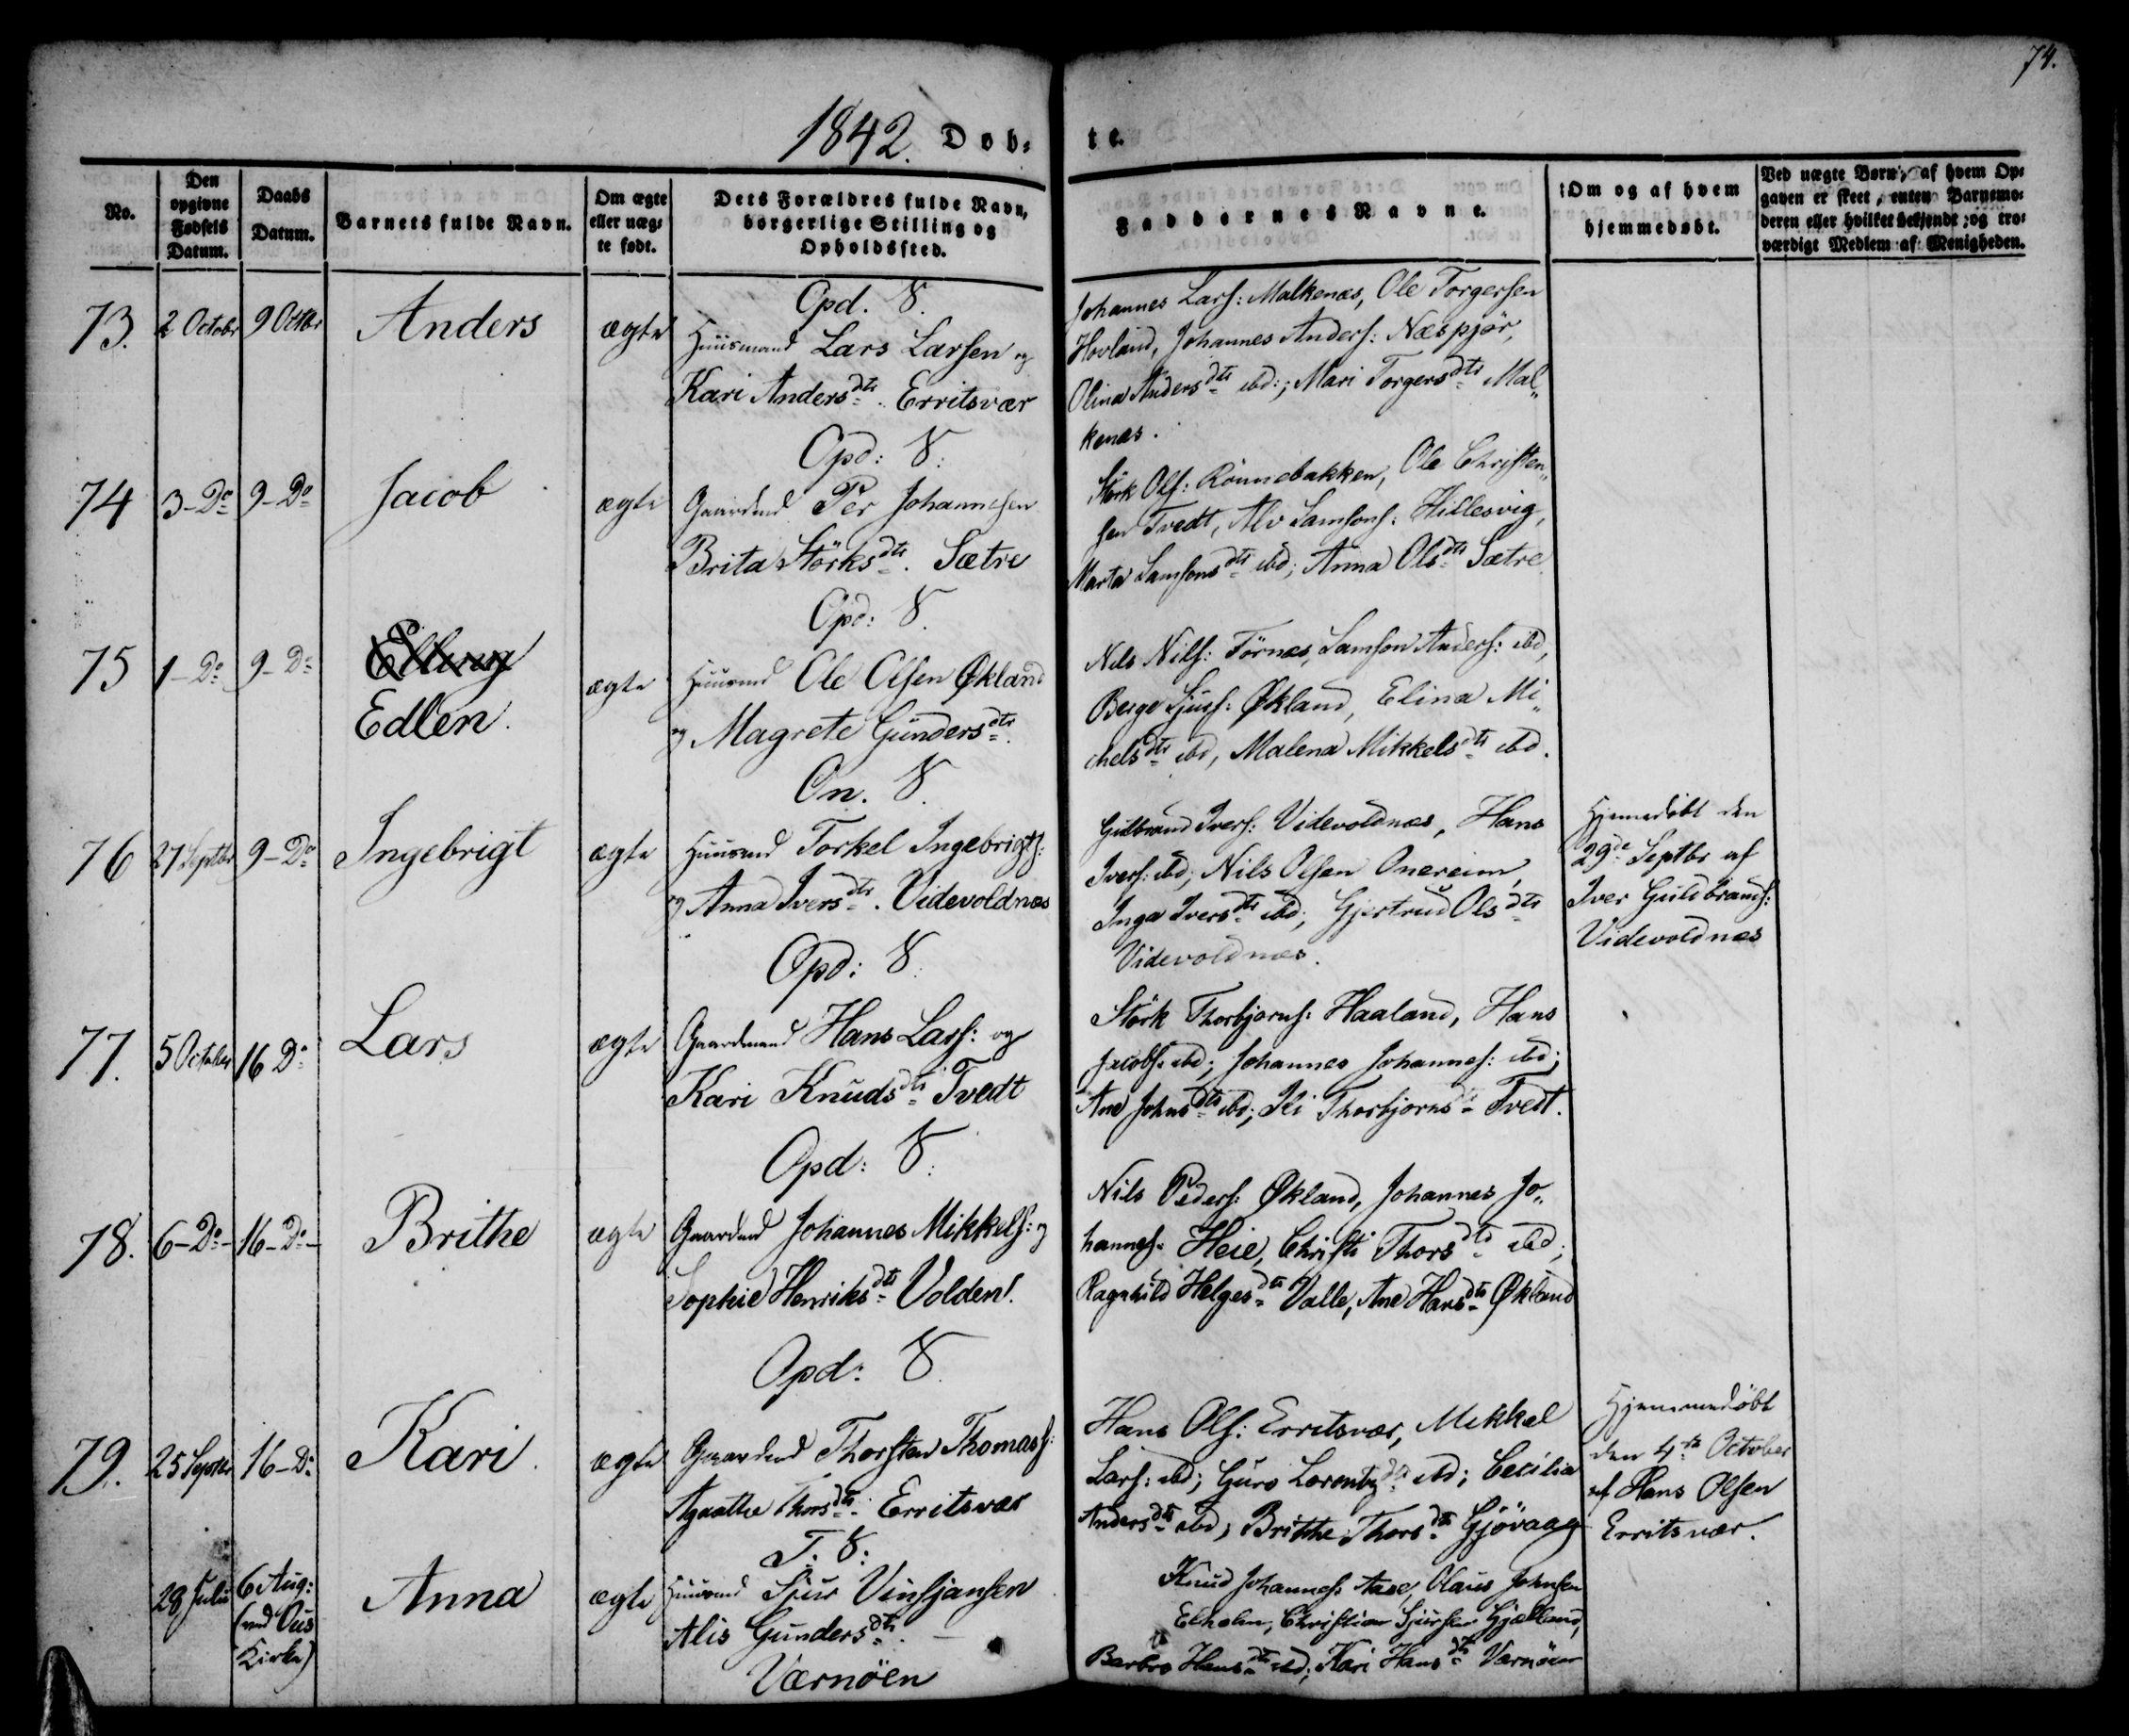 74.
1842. Døb-
te.
No.
Den
opgivne
Fødsels
Datum.
Daabs
Datum.
Barnets fulde Navn.
Om ægte
eller uæg-
te født.
Dets Forældres fulde Navn,
borgerlige Stilling og
Opholdssted.
Faddernes Navne.
Om og af hvem
hjemmedøbt.
Ved uægte Børn, af hvem Op-
gaven er skeet, enten Barnemo-
deren eller hvilket bekjendt og tro-
værdigt Medlem af Menigheden.
Opd. 8.
73. 2 Octobr 9 Octbr Anders ægte Huusmand Lars Larsen og
Kari Andersdtr. Erritsvær
Johannes Lars: Malkenæs, Ole Torgersen
Hovland, Johannes Anders: Næspjør,
Olina Andersdtr ibd:; Mari Torgersdtr Mal-
kenæs.
Opd: 8.
74 3-Do 9-Do Jacob ægte Gaardmd Per Johannesen
Brita Störksdtr. Sætre
Störk Ols: Rönnebakken, Ole Christen-
sen Tvedt, Alv Samsons: Hillesvig,
Marta Samsonsdtr ibd; Anna Olsdtr Sætre
Opd: 8.
75 1-Do 9-Do Edlen. ægte Huusmd Ole Olsen Økland
og Magrete Gundersdtr.
Nils Nils: Förnæs, Samson Anders: ibd,
Berge Sjurs: Økland, Elina Mi-
chelsdtr ibd, Malena Mikkelsdtr ibd.
On. 8.
76 27 Septbr 9-Do Ingebrigt ægte Huusmd Torkel Ingebrigts:
og Anna Iversdtr. Videvoldnæs
Gulbrand Ivers: Videvoldnæs, Hans
Ivers: ibd; Nils Olsen Onereim,
Inga Iversdtr ibd; Gjertrud Olsdtr
Videvoldnæs.
Hjemmedöbt den
29de Septbr af
Iver Guldbrands:
Videvoldnæs
Opd: 8.
77. 5 October 16 Do Lars ægte Gaardmand Hans Lars: og
Kari Knudsdtr Tvedt
Störk Thorbjorns: Haaland, Hans
Jacobs: ibd; Johannes Johannes: ibd;
Ane Johnsdtr ibd; Thorbjornsdtr Tvedt.
Opd: 8.
78. 6-Do- 16-Do- Brithe ægte Gaardmd Johannes Mikkels: og
Sophie Henriksdtr Volden.
Nils Peders: Økland, Johannes Jo-
hannes: Heie, Christi Thorsdtr ibd;
Ragnhild Helgesdtr Valle, Ane Hansdtr Økland
Opd: 8.
79. 25 Septbr 16-Do Kari. ægte Gaardmd Thorsten Thomas:
Agaathe Thorsdtr. Erritsvær
Hans Ols: Erritsvær, Mikkel
Lars: ibd; Guro Lorentzdtr ibd; Cecilia
Andersdtr ibd; Brithe Thorsdtr Gjövaag
Hjemmedöbt
den 4de October
af Hans Olsen
Erritsvær.
T. 8:
28 Julii 6 Aug: Anna ægte Huusmd Sjur Vinsjansen
(ved Ous
Kirke)
Alis Gundersdtr.
Værnöen
Knud Johannes: Aase, Olaus Johnsen
Elholm, Christian Sjursen Gjælland,
Barbro Hansdtr ibd; Kari Hansdtr Værnöen